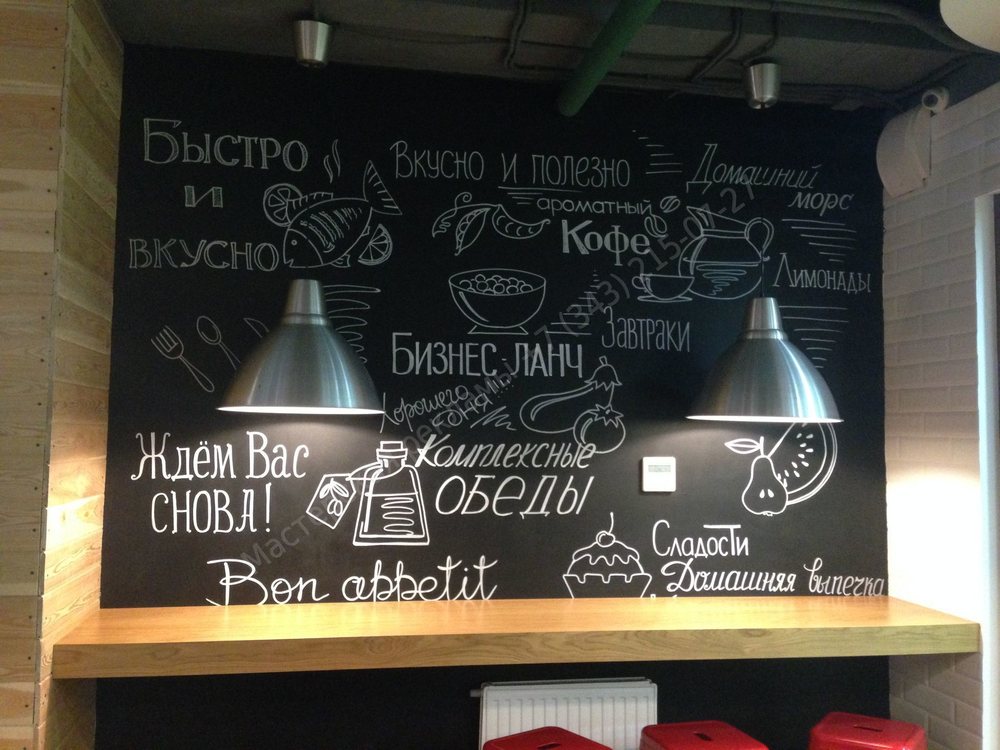 Быстро
и
вкусно
Вкусно и полезно
ароматный
Кофе
Домашний
морс
Лимонады
Завтраки
Бизнес ланч
Хорошего
дня
Ждём Вас
снова!
Комплексные
обеды
Bon appetit
Сладости
Домашняя выпечка
+7 (343) 215-07-27